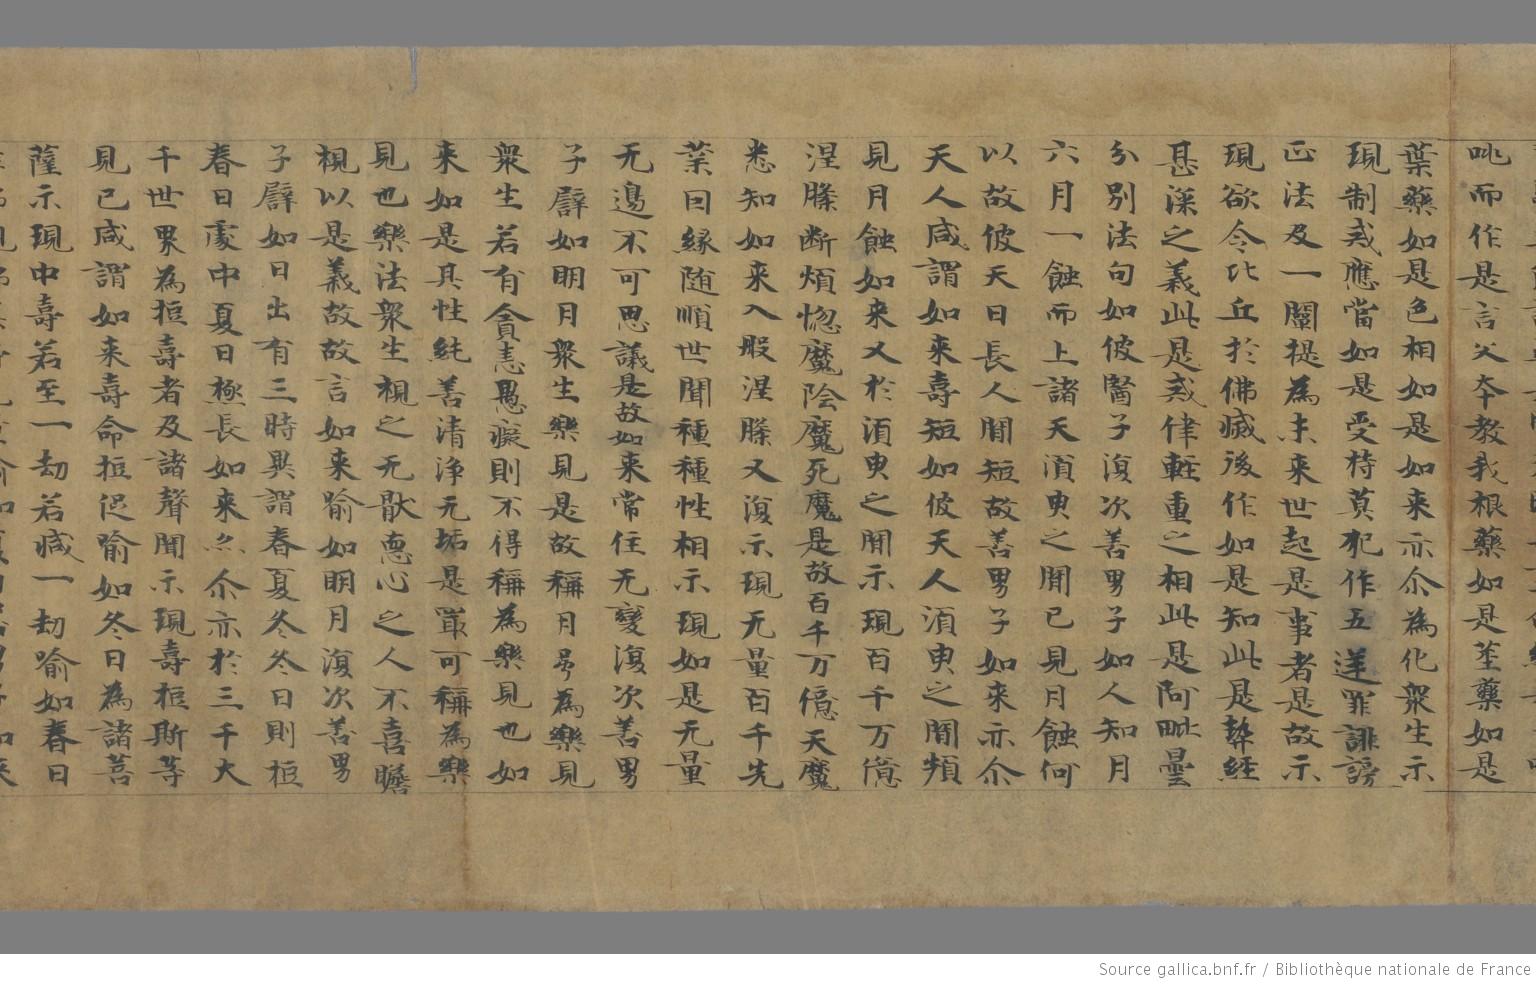 吮而作是言父本教我根藥如是莖藥如是
葉藥如是色相如是如来亦尒為化衆生示
現制戒應當如是受持莫犯作五逆罪誹謗
正法及一闡提為未来世起是事者是故示
現欲令比丘於佛滅後作如是知此是契經
甚深之義此是戒律輕重之相此是阿毗曇
分別法句如彼醫子復次善男子如人知月
六月一蝕而上諸天湏臾之間已見月蝕何
以故彼天日長人間短故善男子如来亦尒
天人咸謂如来壽短如彼天人湏臾之間頻
見月蝕如来又於湏臾之間示現百千万億
涅槃断煩惚魔陰魔死魔是故百千万億天魔
悉知如来入般涅槃又復示現无量百千先
業因緣随順世間種種性相示現如是无量
无邊不可思議是故如来常住无變復次善男
子譬如明月衆生樂見是故稱月号為樂見
衆生若有貪恚愚癡則不得稱為樂見也如
来如是其性純善清淨无垢是冣可稱為樂
見也樂法衆生視之无猒惡心之人不喜瞻
視以是義故故言如来喻如明月復次善男
子譬如日出有三時異謂春夏冬冬日則短
春日處中夏日極長如来亦尒亦於三千大
千世界為短壽者及諸聲聞示現壽短斯等
見已咸謂如来壽命短促喻如冬日為諸菩
薩示現中壽若至一劫若減一劫喻如春日